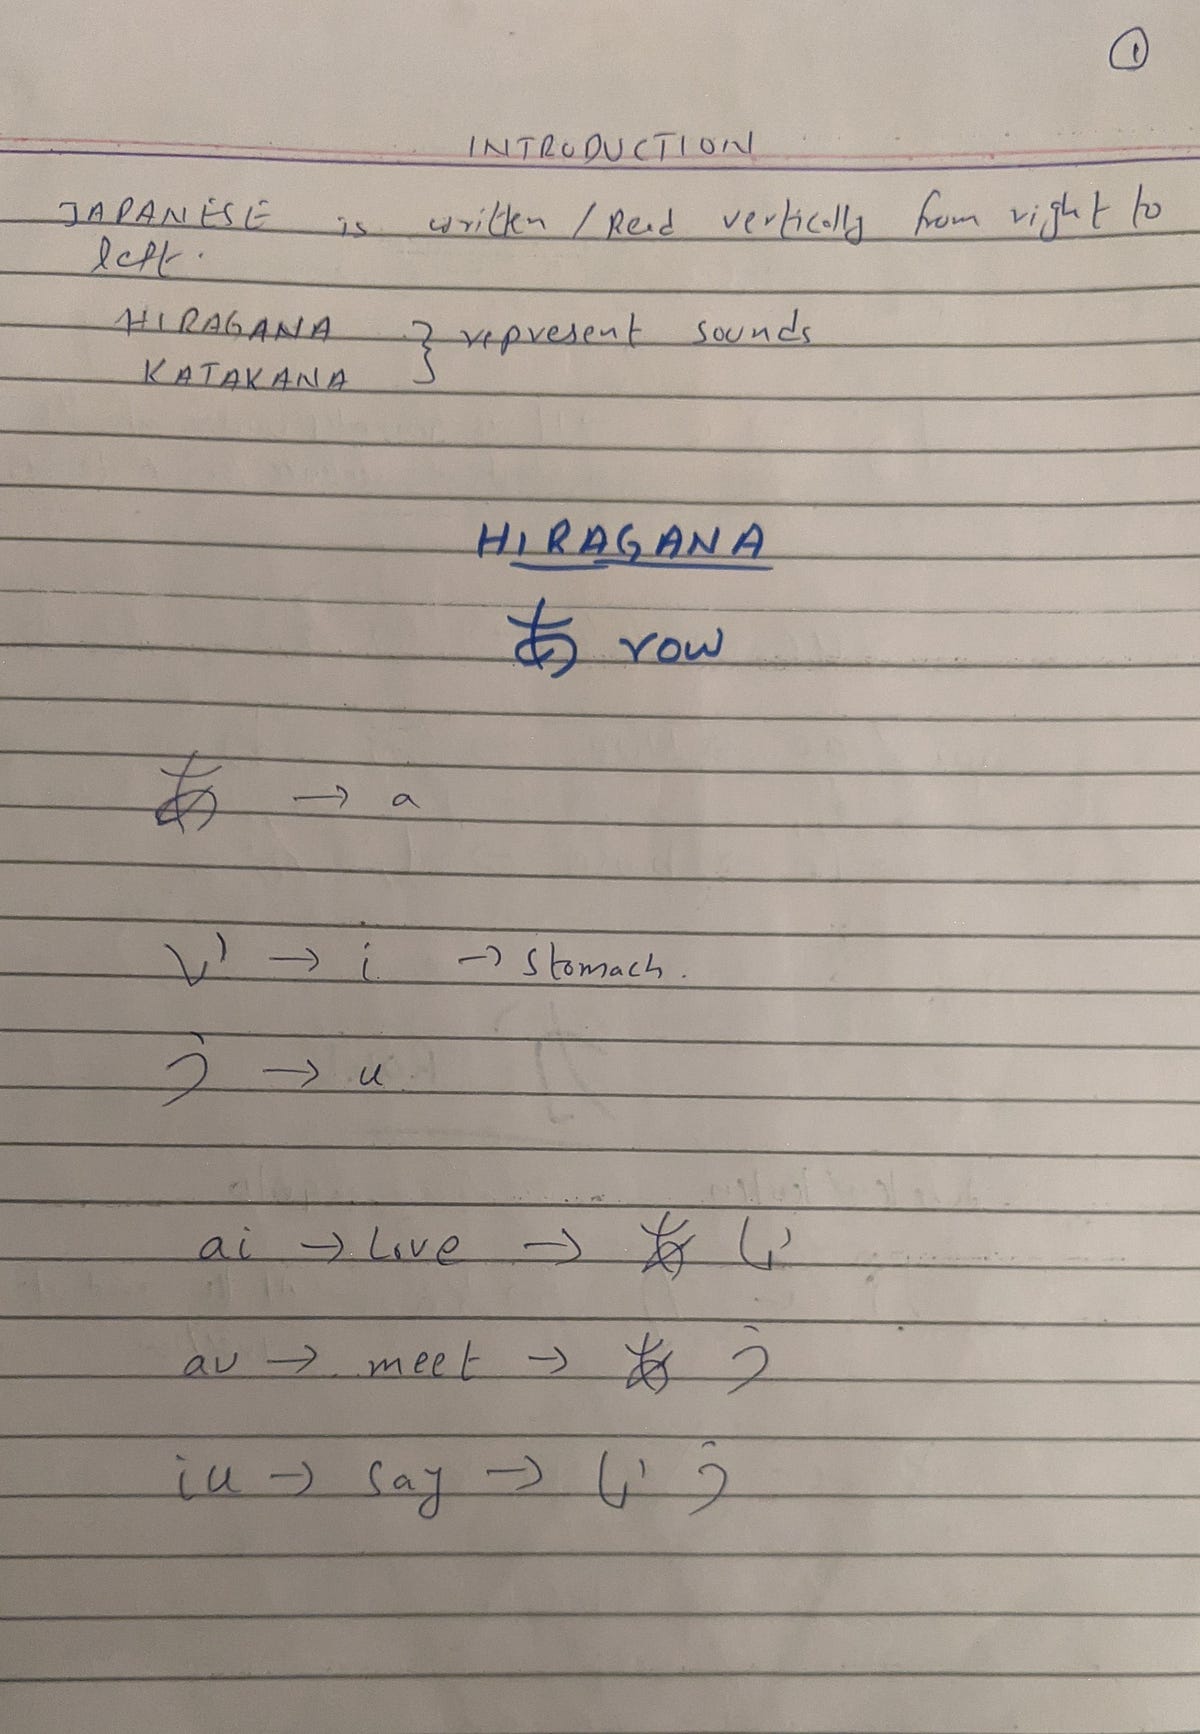 1
INTRODUCTION
JAPANESE is written / Read vertically from right to
left.
HIRAGANA } represent sounds
KATAKANA
HIRAGANA
あ row
あ → a
い → i → stomach.
う → u
ai → Love → あ い
au → meet → あ う
iu → say → い う